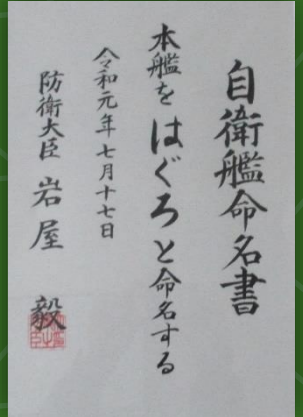 自衛艦命名書
本艦をはぐろと命名する
令和元年七月十七日
防衛大臣 岩屋 毅